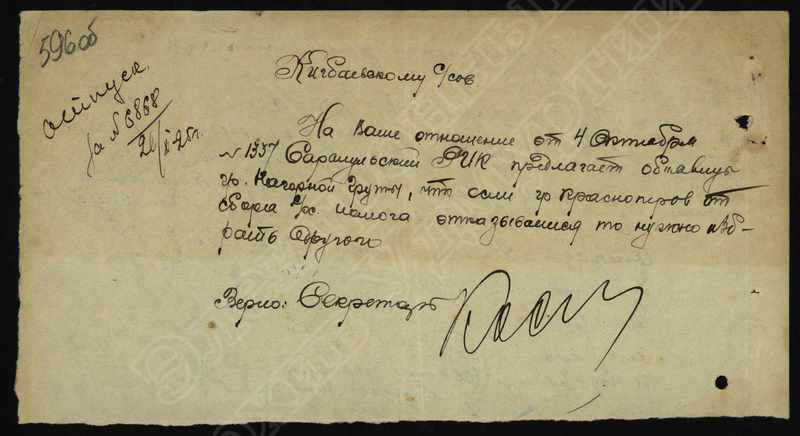 596об
отпуск.
за № 6868
20/X-25 г.
Кигбаевскому с/сов
На Ваше отношение от 4 Октября
№ 1337 Сарапульский РИК предлагает об'явить
гр. Нагорной группы, что если гр Красноперов от
сбора с/х. налога отказывается то нужно изб-
рать другого
Верно: Секретарь